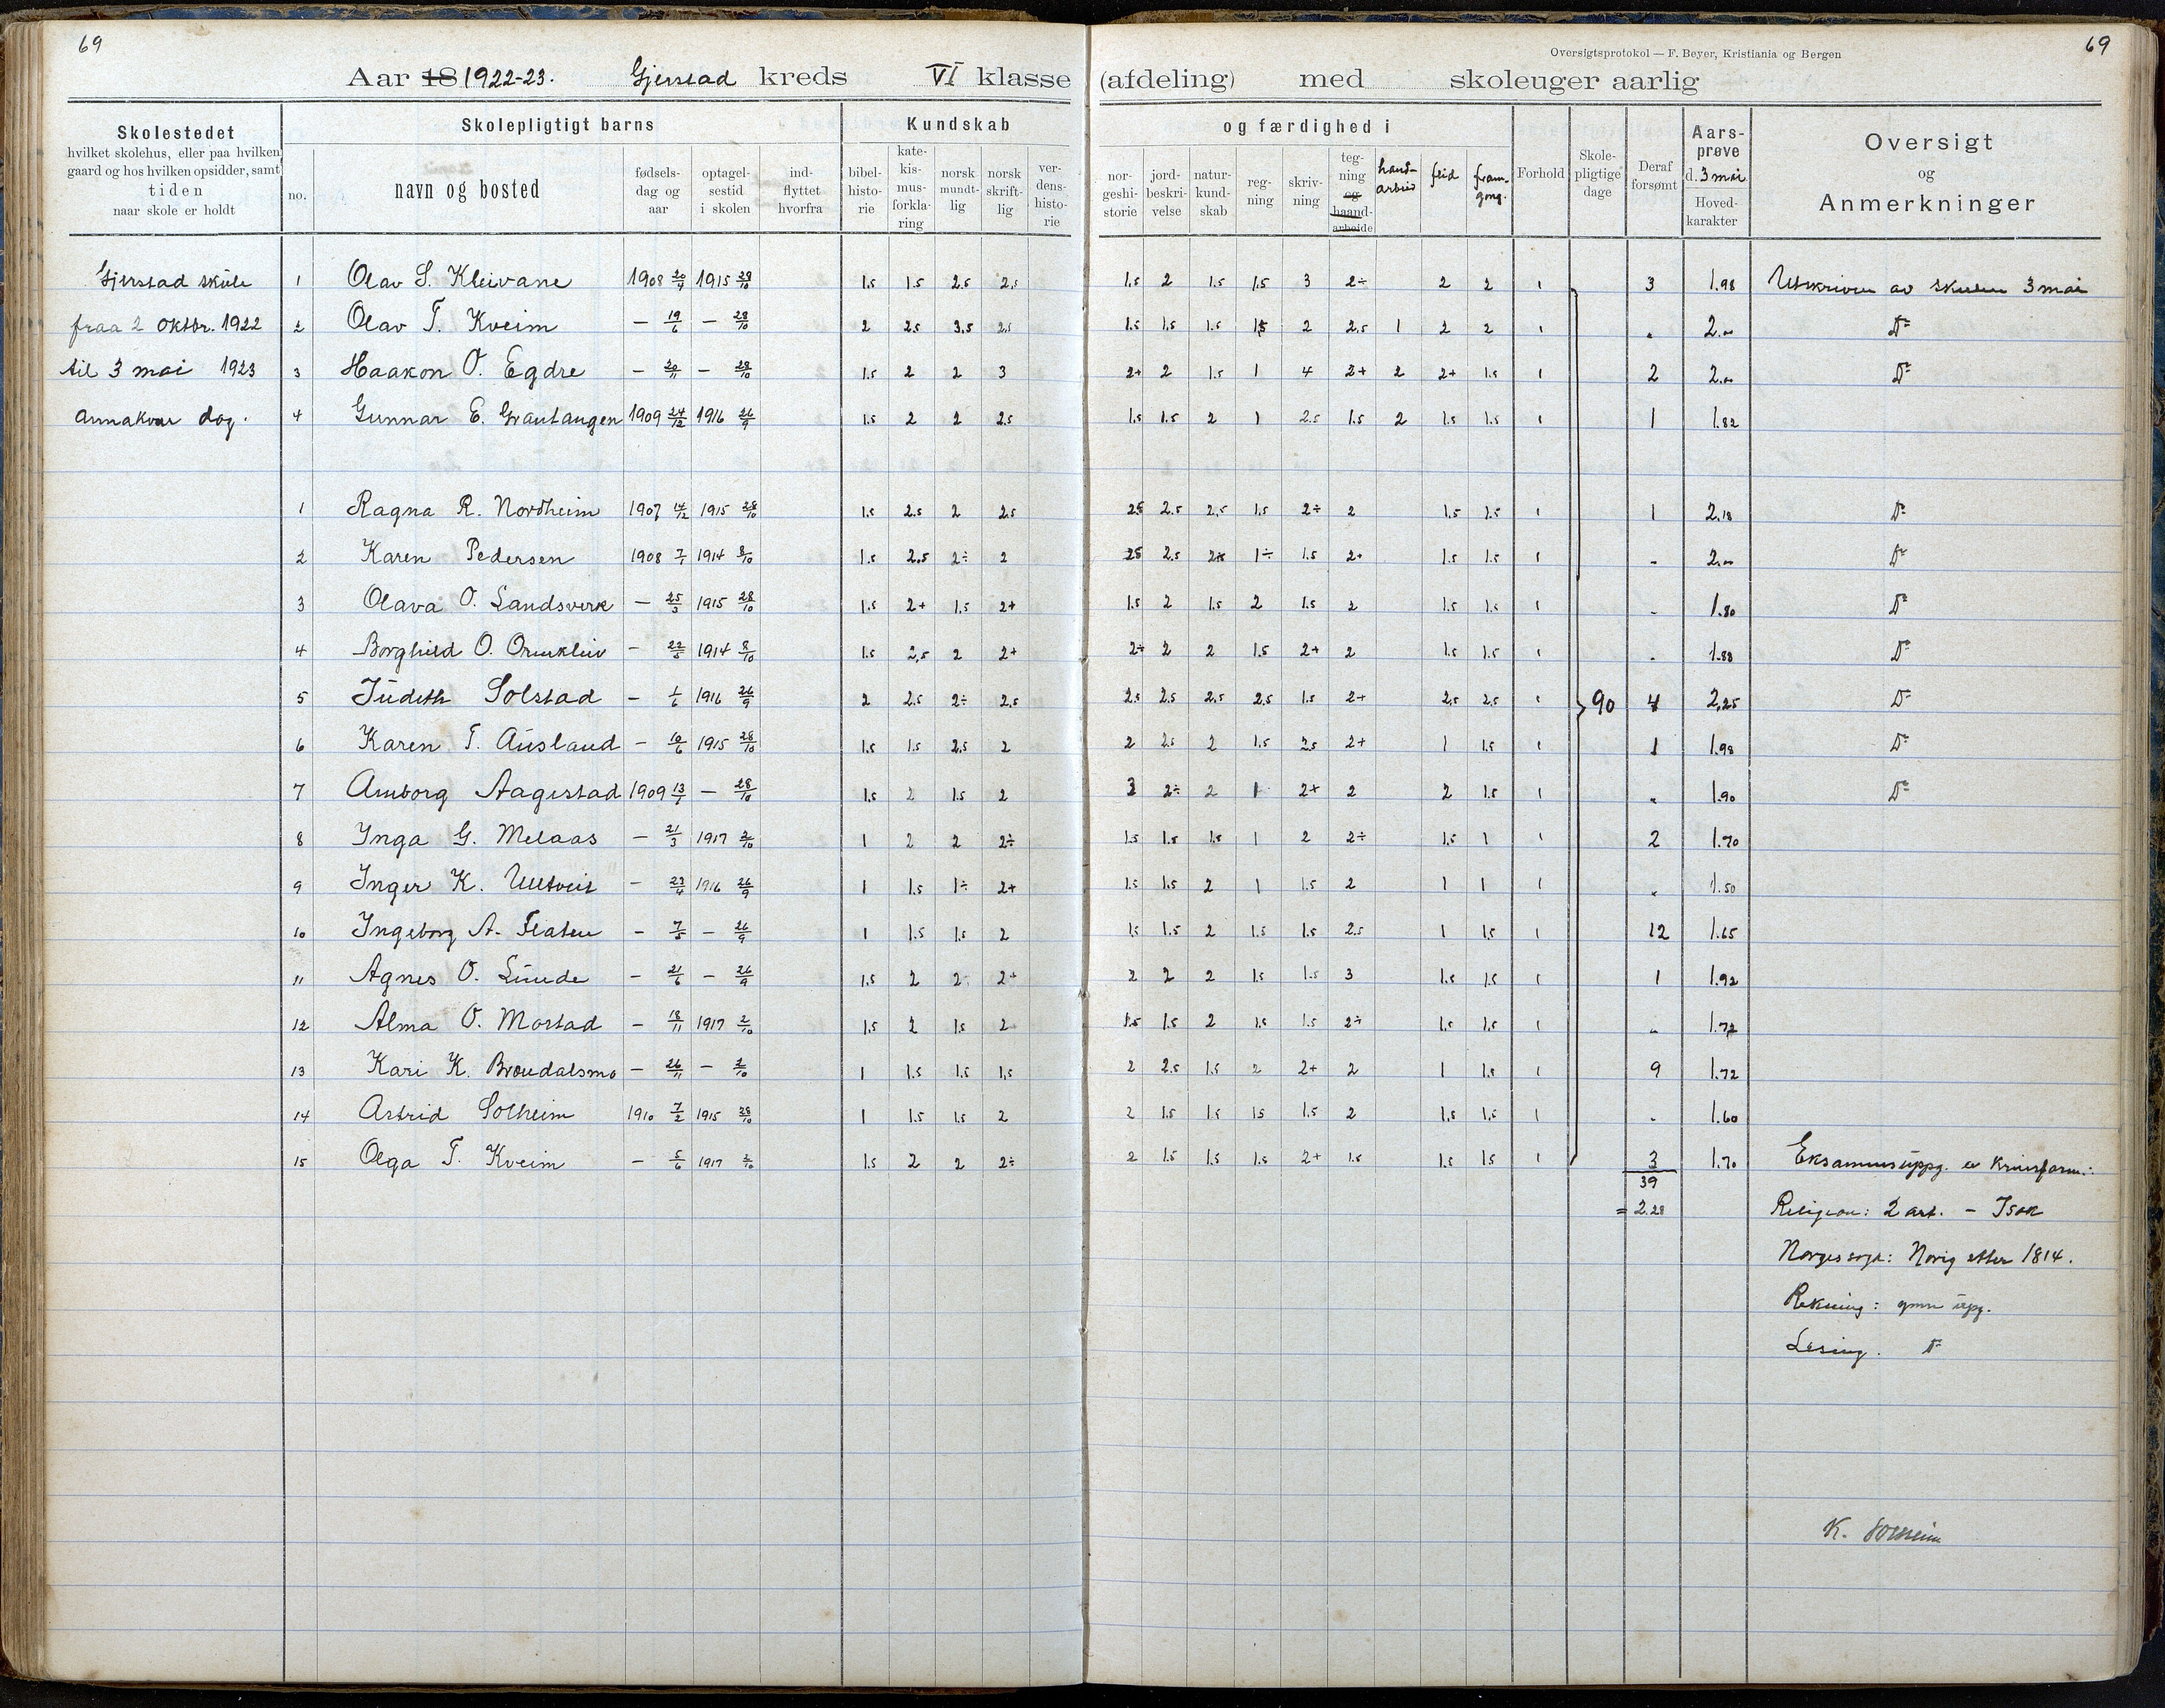 69
69
Oversigtsprotokol — F. Beyer, Kristiania og Bergen
Aar 18 1922-23. Gjerstad kreds VI klasse (afdeling) med skoleuger aarlig
Skolestedet
hvilket skolehus, eller paa hvilken
gaard og hos hvilken opsidder, samt
tiden
naar skole er holdt
Skolepligtigt barns
no.
navn og bosted
fødsels-
dag og
aar
optagel-
sestid
i skolen
ind-
flyttet
hvorfra
Kundskab og færdighed i
bibel-
histo-
rie
kate-
kis-
mus-
forkla-
ring
norsk
mundt-
lig
norsk
skrift-
lig
ver-
dens-
histo-
rie
nor-
geshi-
storie
jord-
beskri-
velse
natur-
kund-
skab
reg-
ning
skriv-
ning
teg-
ning
og
haand-
arbeide
hand-
arbeid
flid
fram-
gong.
Forhold
Skole-
pligtige
dage
Deraf
forsømt
Aars-
prøve
d. 3 mai
Hoved-
karakter
Oversigt
og
Anmerkninger
Gjerstad skule 1 Olav S. Kleivane 1908 20/4 1915 28/10 1.5 1.5 2.5 2.5 1.5 2 1.5 1.5 3 2÷ 2 2 1 3 1.98 Utskriven av skulen 3 mai
fraa 2 oktbr. 1922 2 Olav T. Kveim — 19/6 — 28/10 2 2.5 3.5 2.5 1.5 1.5 1.5 1.5 2 2.5 1 2 2 1 „ 2.00 Do
til 3 mai 1923 3 Haakon O. Egdre — 20/11 — 28/10 1.5 2 2 3 2+ 2 1.5 1 4 2+ 2 2+ 1.5 1 2 2.00 Do
annakvar dag. 4 Gunnar E. Grautangen 1909 24/12 1916 26/9 1.5 2 2 2.5 1.5 1.5 2 1 2.5 1.5 2 1.5 1.5 1 1 1.82
1 Ragna R. Nordheim 1907 14/12 1915 28/10 1.5 2.5 2 2.5 2.5 2.5 2.5 1.5 2÷ 2 1.5 1.5 1 1 2.18 Do
2 Karen Pedersen 1908 7/1 1914 8/10 1.5 2.5 2÷ 2 2.5 2.5 1÷ 1.5 2+ 1.5 1.5 1 „ 2.00 Do
3 Olava O. Landsverk — 25/3 1915 28/10 1.5 2+ 1.5 2+ 1.5 2 1.5 2 1.5 2 1.5 1.5 1 „ 1.80 Do
4 Borghild O. Ormkleiv — 22/5 1914 8/10 1.5 2.5 2 2+ 2÷ 2 2 1.5 2+ 2 1.5 1.5 1 „ 1.88 Do
5 Judith Solstad — 1/6 1916 26/9 2 2.5 2÷ 2.5 2.5 2.5 2.5 2.5 1.5 2+ 2.5 2.5 1 90 4 2.25 Do
6 Karen T. Ausland — 10/6 1915 28/10 1.5 1.5 2.5 2 2 2.5 2 1.5 2.5 2+ 1 1.5 1 1 1.98 Do
7 Aasborg Aagestad 1909 13/1 — 28/10 1.5 2 1.5 2 3 2÷ 2 1 2+ 2 2 1.5 1 „ 1.90 Do
8 Inga G. Melaas — 21/3 1917 2/10 1 2 2 2÷ 1.5 1.5 1.5 1 2 2÷ 1.5 1 1 2 1.70
9 Inger K. Ulltveit — 23/4 1916 26/9 1 1.5 1÷ 2+ 1.5 1.5 2 1 1.5 2 1 1 1 „ 1.50
10 Ingeborg A. Flaten — 7/5 — 26/9 1 1.5 1.5 2 1.5 1.5 2 1.5 1.5 2.5 1 1.5 1 12 1.65
11 Agnes O. Lunde — 21/6 — 26/9 1.5 2 2 2+ 2 2 2 1.5 1.5 3 1.5 1.5 1 1 1.92
12 Alma O. Mostad — 18/11 1917 2/10 1.5 2 1.5 2 1.5 1.5 2 1.5 1.5 2÷ 1.5 1.5 1 „ 1.72
13 Kari K. Brøudalsmo — 26/11 — 2/10 1 1.5 1.5 1.5 2 2.5 1.5 2 2+ 2 1 1.5 1 9 1.72
14 Astrid Solheim 1910 7/2 1915 28/10 1 1.5 1.5 2 2 1.5 1.5 1.5 1.5 2 1.5 1.5 1 „ 1.60
15 Olga T. Kveim — 5/6 1917 2/10 1.5 2 2 2÷ 2 1.5 1.5 1.5 2+ 1.5 1.5 1.5 1 3 1.70 Eksamensuppg. av
39
= 2.28 Religion: 2 art. — Isak
Norgessoga: Norig etter 1814.
Rekning: ymse upg.
Lesing. Do
K. Solheim